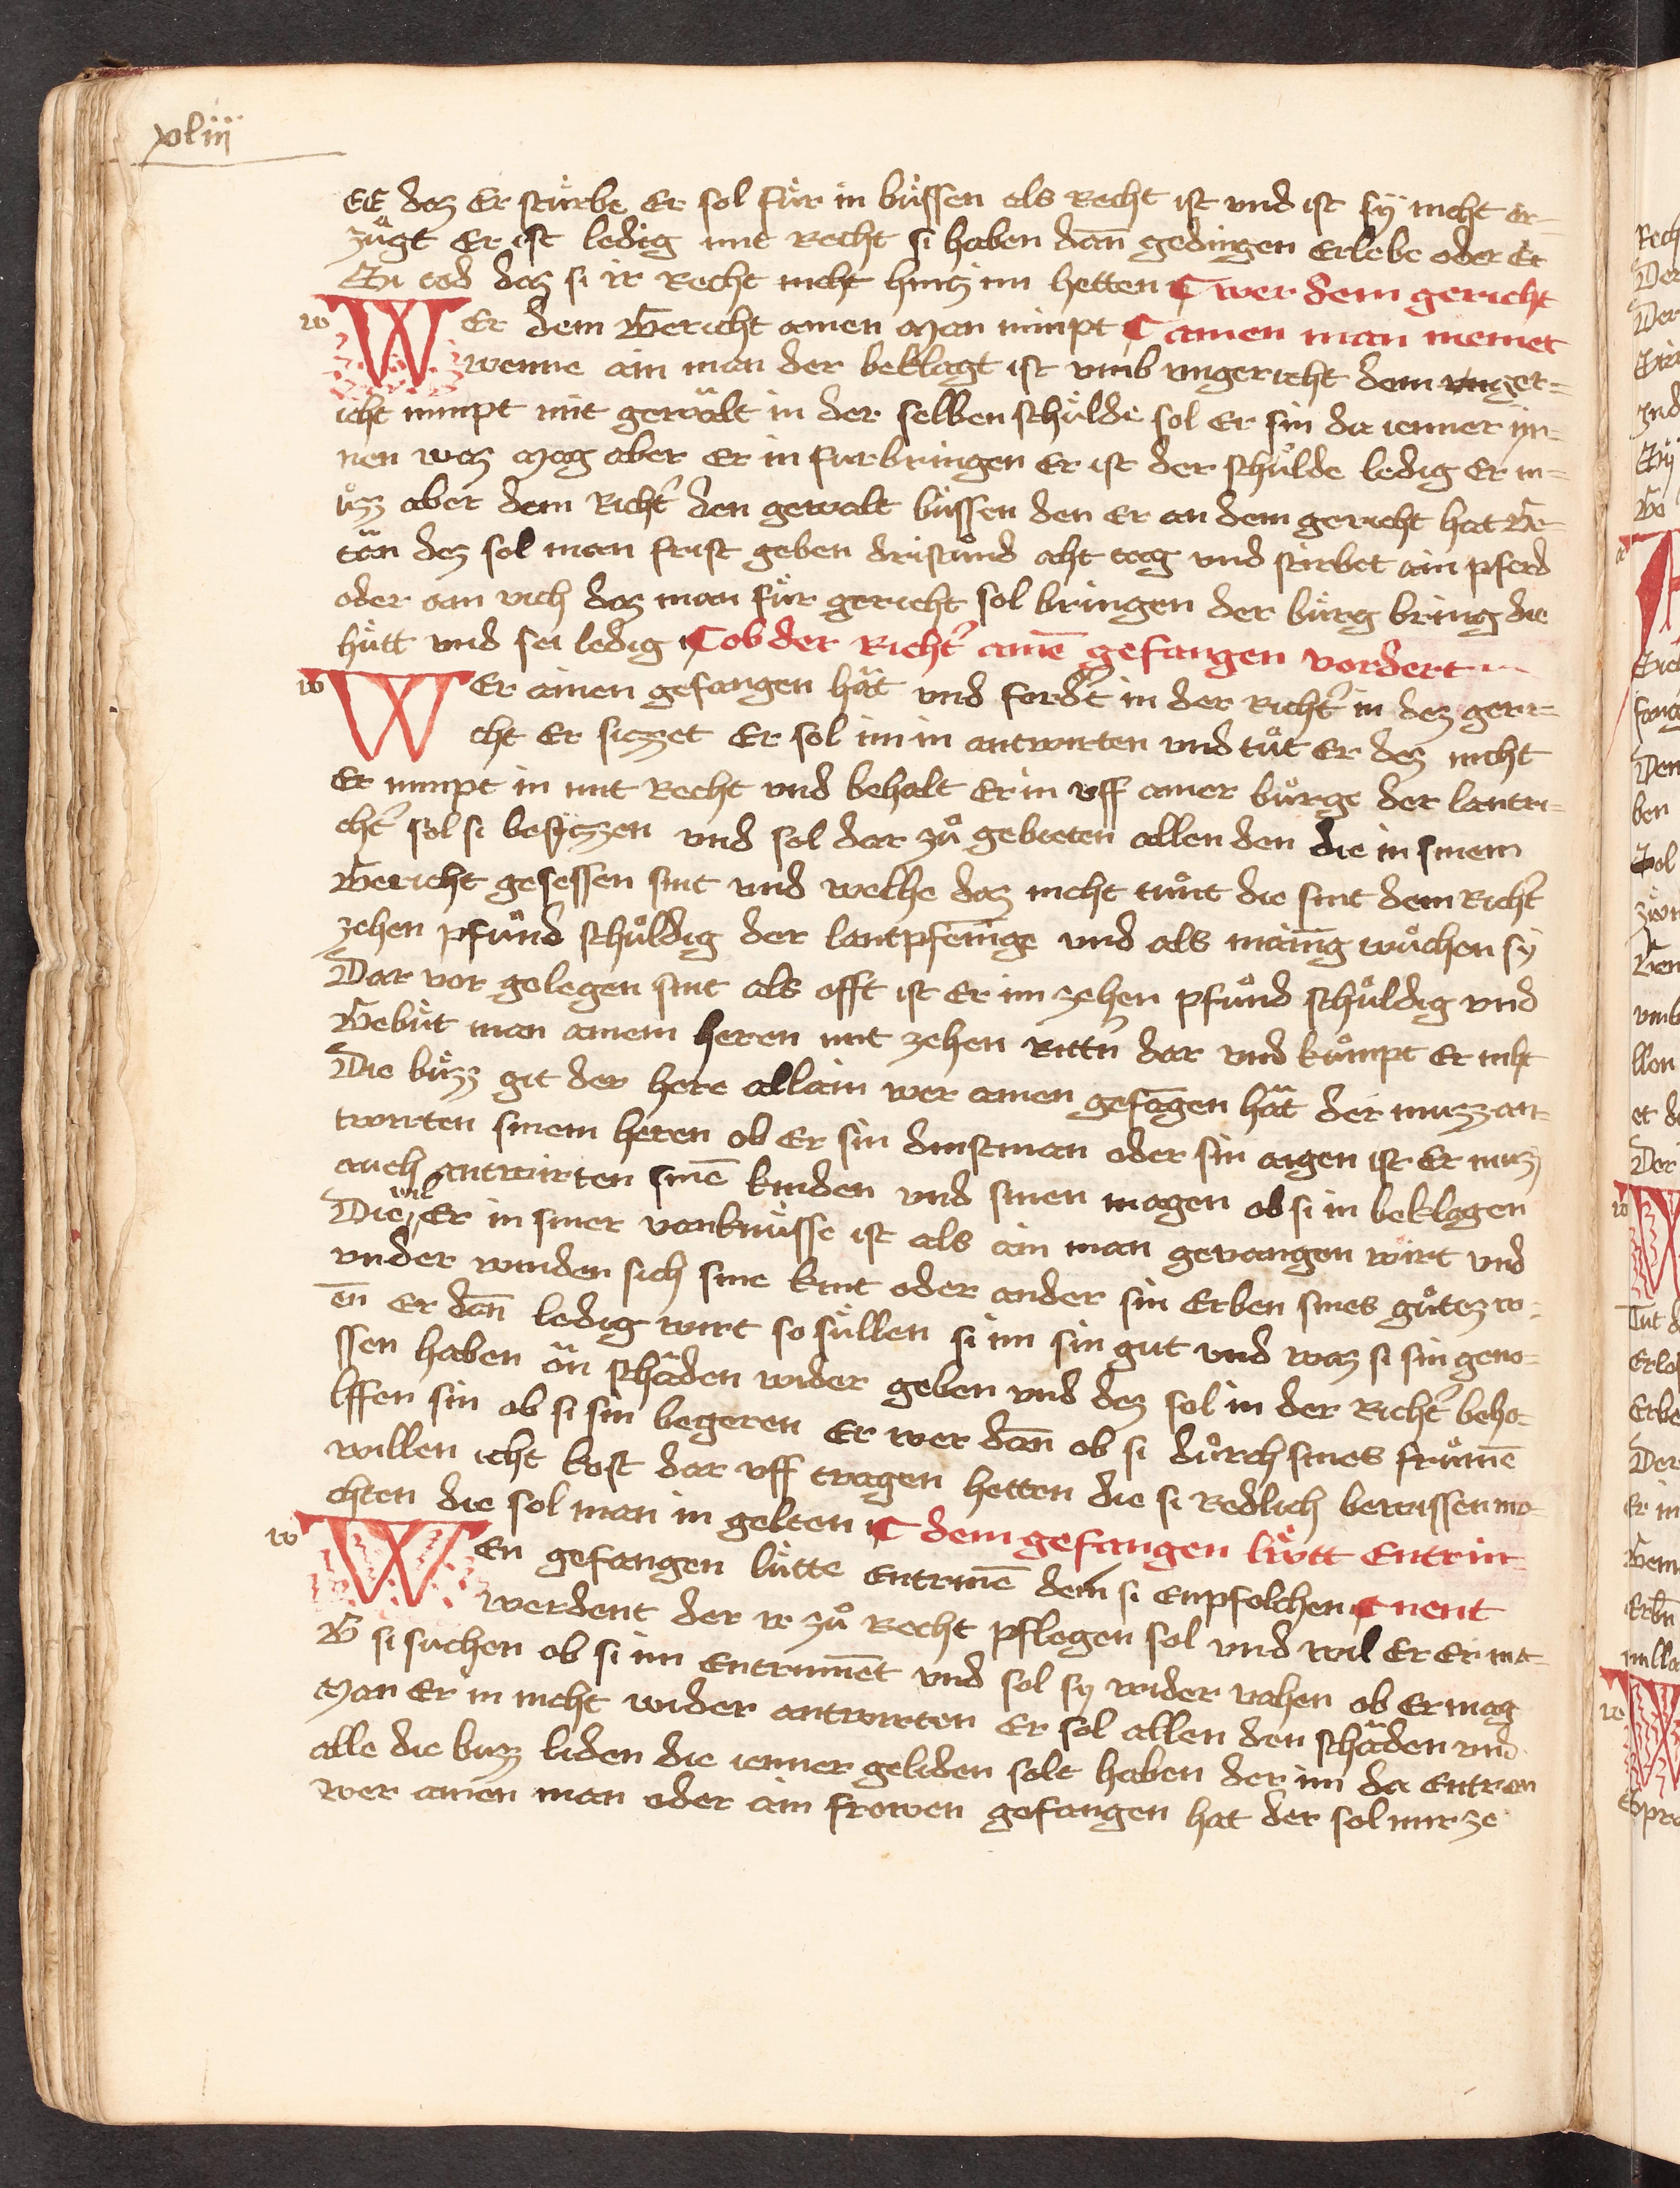 xliii
EE daz Er stùrbe Er sol fùr in bùssen als Recht ist vnd ist sÿ nicht er-
zùgt Er ist ledig mit Recht si haben dan̄ gedingen Erlebe oder Er
Si tod daz si ir Recht nicht hintz im hetten ¶ wer dem gericht
WEr dem Gericht ainen Man nimpt ¶ ainen man niemet
wenne ain man der beklagt ist vmb vngericht dem ger-
icht nimpt mit gewalt in der selben schulde sol Er sin da ienner in-
nen waz Mag aber Er in furbringen Er ist der schulde ledig Er m-
ůzz aber dem Richt' den gewalt bùssen den Er an dem gericht hat Ge-
tän dez sol man frist geben dristůnd aht tag vnd stirbet ain pferd
oder ain vich daz man fùr gericht sol bringen der bùrg bring die
hùtt vnd sei ledig ¶ ob der Richt' aine̅ gefangen vordert
WEr ainen gefangen hät vnd fordt' in der Richt' in dez geri-
cht Er siczzet Er sol im in antwurten vnd tůt Er dez nicht
Er nimpt in mit Recht vnd behalt Er in vff ainer bůrge der lantri-
cht' sol si besiczzen vnd sol dar zů gebieten allen den die in sinem
Gericht gesessen sint vnd welhe daz nicht tůnt die sint dem Richt'
zehen pfůnd schůldig der lantpfenn̄ige vnd als manig wůchen sÿ
Dar vor gelegen sint als offt ist Er im zehen pfůnd schůldig vnd
Gebùt man ainem heren mit zehen Rittn̄ dar vnd kůmpt Er niht
Die bùzz git der here allain wer ainen gefangen hät der muzz an-
twurten sinem heren ob Er sin dinstman oder sin aigen ist Er muz
auch antwùrten sine̅ kinden vnd sinen magen ob si in beklagen
Die wil Er in siner vanknùsse ist als ain man gevangen wirt vnd
vnder winden sich sine kint oder ander sin Erben sines gůtez w-
en̄ Er dan̄ ledig wirt so sùllen si im sin gut vnd waz si sin geno-
ssen haben än schäden wider geben vnd dez sol in der Richt' beho-
lffen sin ob si sin begeren Er wer dan̄ ob si dùrch sines frùme̅
willen icht kost dar vff tragen hetten die si Redlich bewissen mo-
chten die sol man in gelten ¶ dem gefangen lùtt Entrin
WEn gefangen lùtte Entrine̅ dem si Enpfolchen ¶ nent
werdent der ir zů Recht pflegen sol vnd wil Er Er ma-
G si suchen ob si im Entrinnet vnd sol sÿ wider vahen ob Er mag
Man Er in nicht wider antwurten Er sol allen den schäden vnd
alle die buzz liden die ienner geliden solt haben der im da Entran
wer ainen man oder ain frowen gefangen hat der sol mir ze